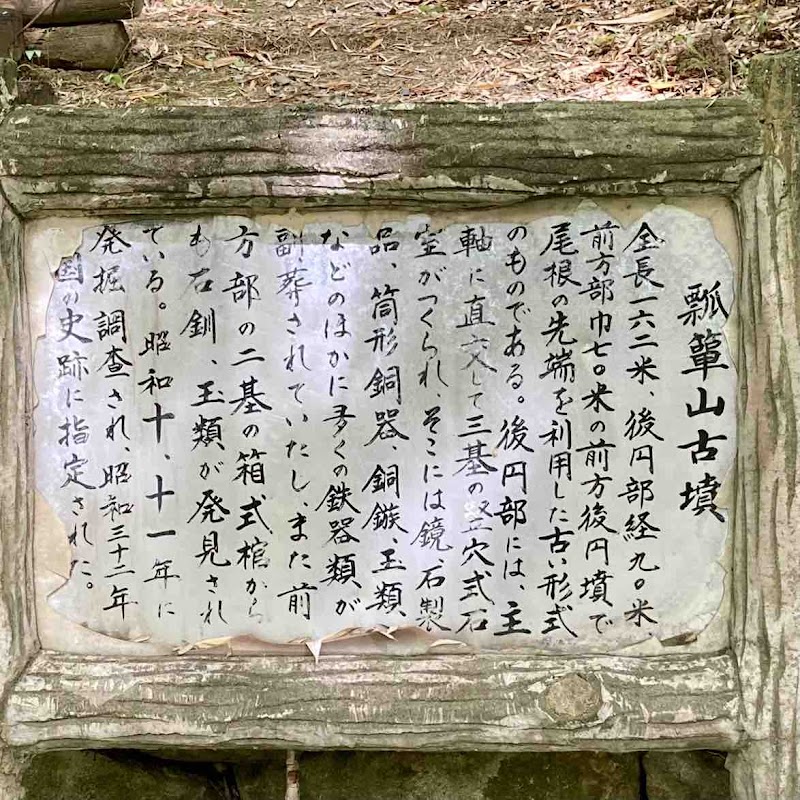 瓢箪山古墳
全長一六二米、後円部経九〇米、
前方部巾七〇米の前方後円墳で
尾根の先端を利用した古い形式
のものである。後円部には、主
軸に直交して三基の竪穴式石
室がつくられ、そこには鏡、石製
品、筒形銅器、銅鏃、玉類、
などのほかに多くの鉄器類が
副葬されていたし、また前
方部の二基の箱式棺から
も石釧、玉類が発見され
ている。昭和十、十一年に
発掘調査され、昭和三十二年
国の史跡に指定された。